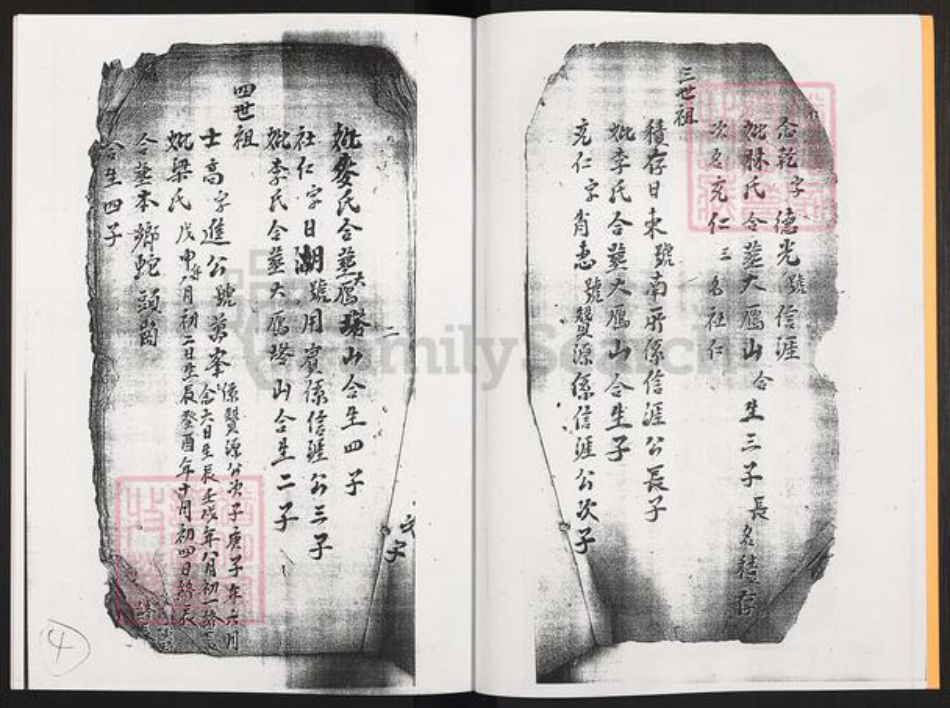 念乾字德光號信涯
妣林氏合塟大鴈山合生三子長名積存
次名充仁三名社仁
三世祖
積存日東號南所係信涯公長子
妣李氏合塟大鴈山合生子
充仁字肖惠號贊源係信涯公次子
妣麥氏合塟大鴈塔山合生四子
社仁字日湖號用賓係信涯公三子
妣李氏合塟大鴈塔山合生二子
四世祖
士高字進公號萬峯係贊源公次子庚子年六月
念六日生辰壬戌年八月初一終
妣梁氏戊申年八月初二日生辰癸酉年十月初四日終
合塟本鄉蛇頭崗
合生四子
次子
二
4
FamilySearch